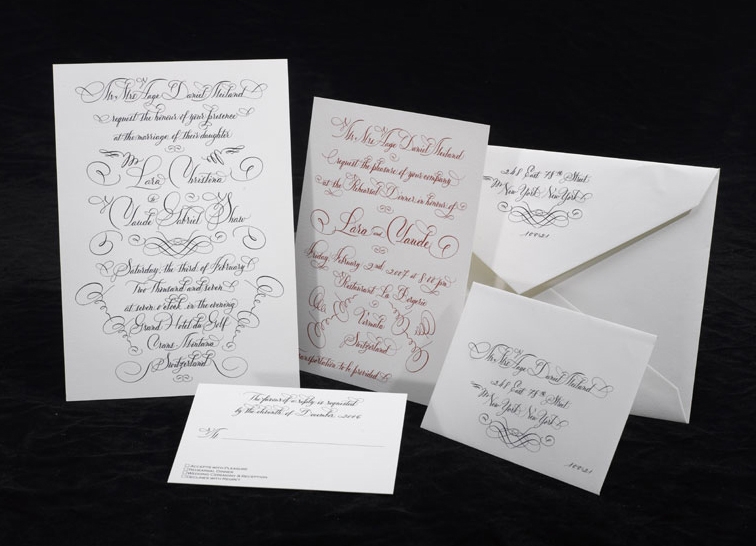 Mr. Mrs. Tage Daniel Neiland
request the honour of your presence
at the marriage of their daughter
Lara Christina
to
Claude Gabriel Shaw
Saturday, the third of February
Two thousand and seven
at seven o'clock in the evening
Grand Hotel du Golf
Crans Montana
Switzerland
Mr. Mrs. Tage Daniel Neiland
request the pleasure of your company
at the Rehearsal Dinner in honour of
Lara and Claude
Friday, February 2nd, 2007 at 8:00 pm
Restaurant La
Switzerland
transportation to be provided
248 East 78th Street
New York, New York
10021
The favour of a reply is requested
by the eleventh of December, 2006
M
ACCEPTS WITH PLEASURE
REHEARSAL DINNER
WEDDING CEREMONY & RECEPTION
DECLINES WITH REGRET
Mr. Mrs. Tage Daniel Neiland
248 East 78th Street
New York, New York
10021